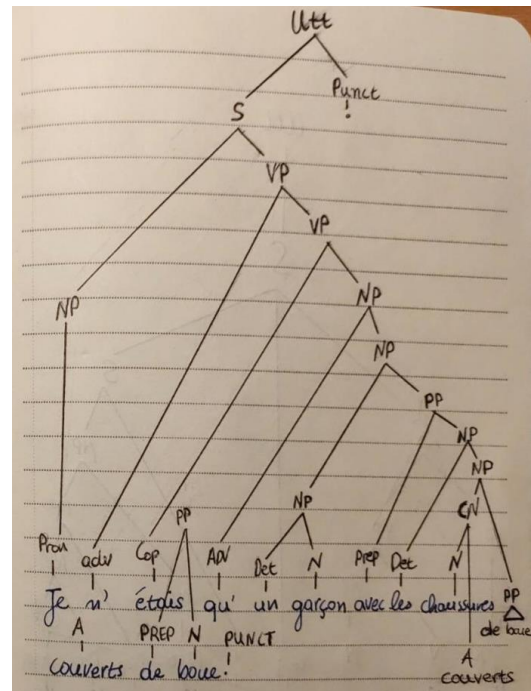 Utt
S Punct
!
VP
VP
NP NP
NP
PP
NP
NP
NP PP CN
Pron adv Cop ADV Det N Prep Det N PP
Je n' étais qu' un garçon avec les chaussures de boue
A PREP N PUNCT
couverts de boue! A
couverts